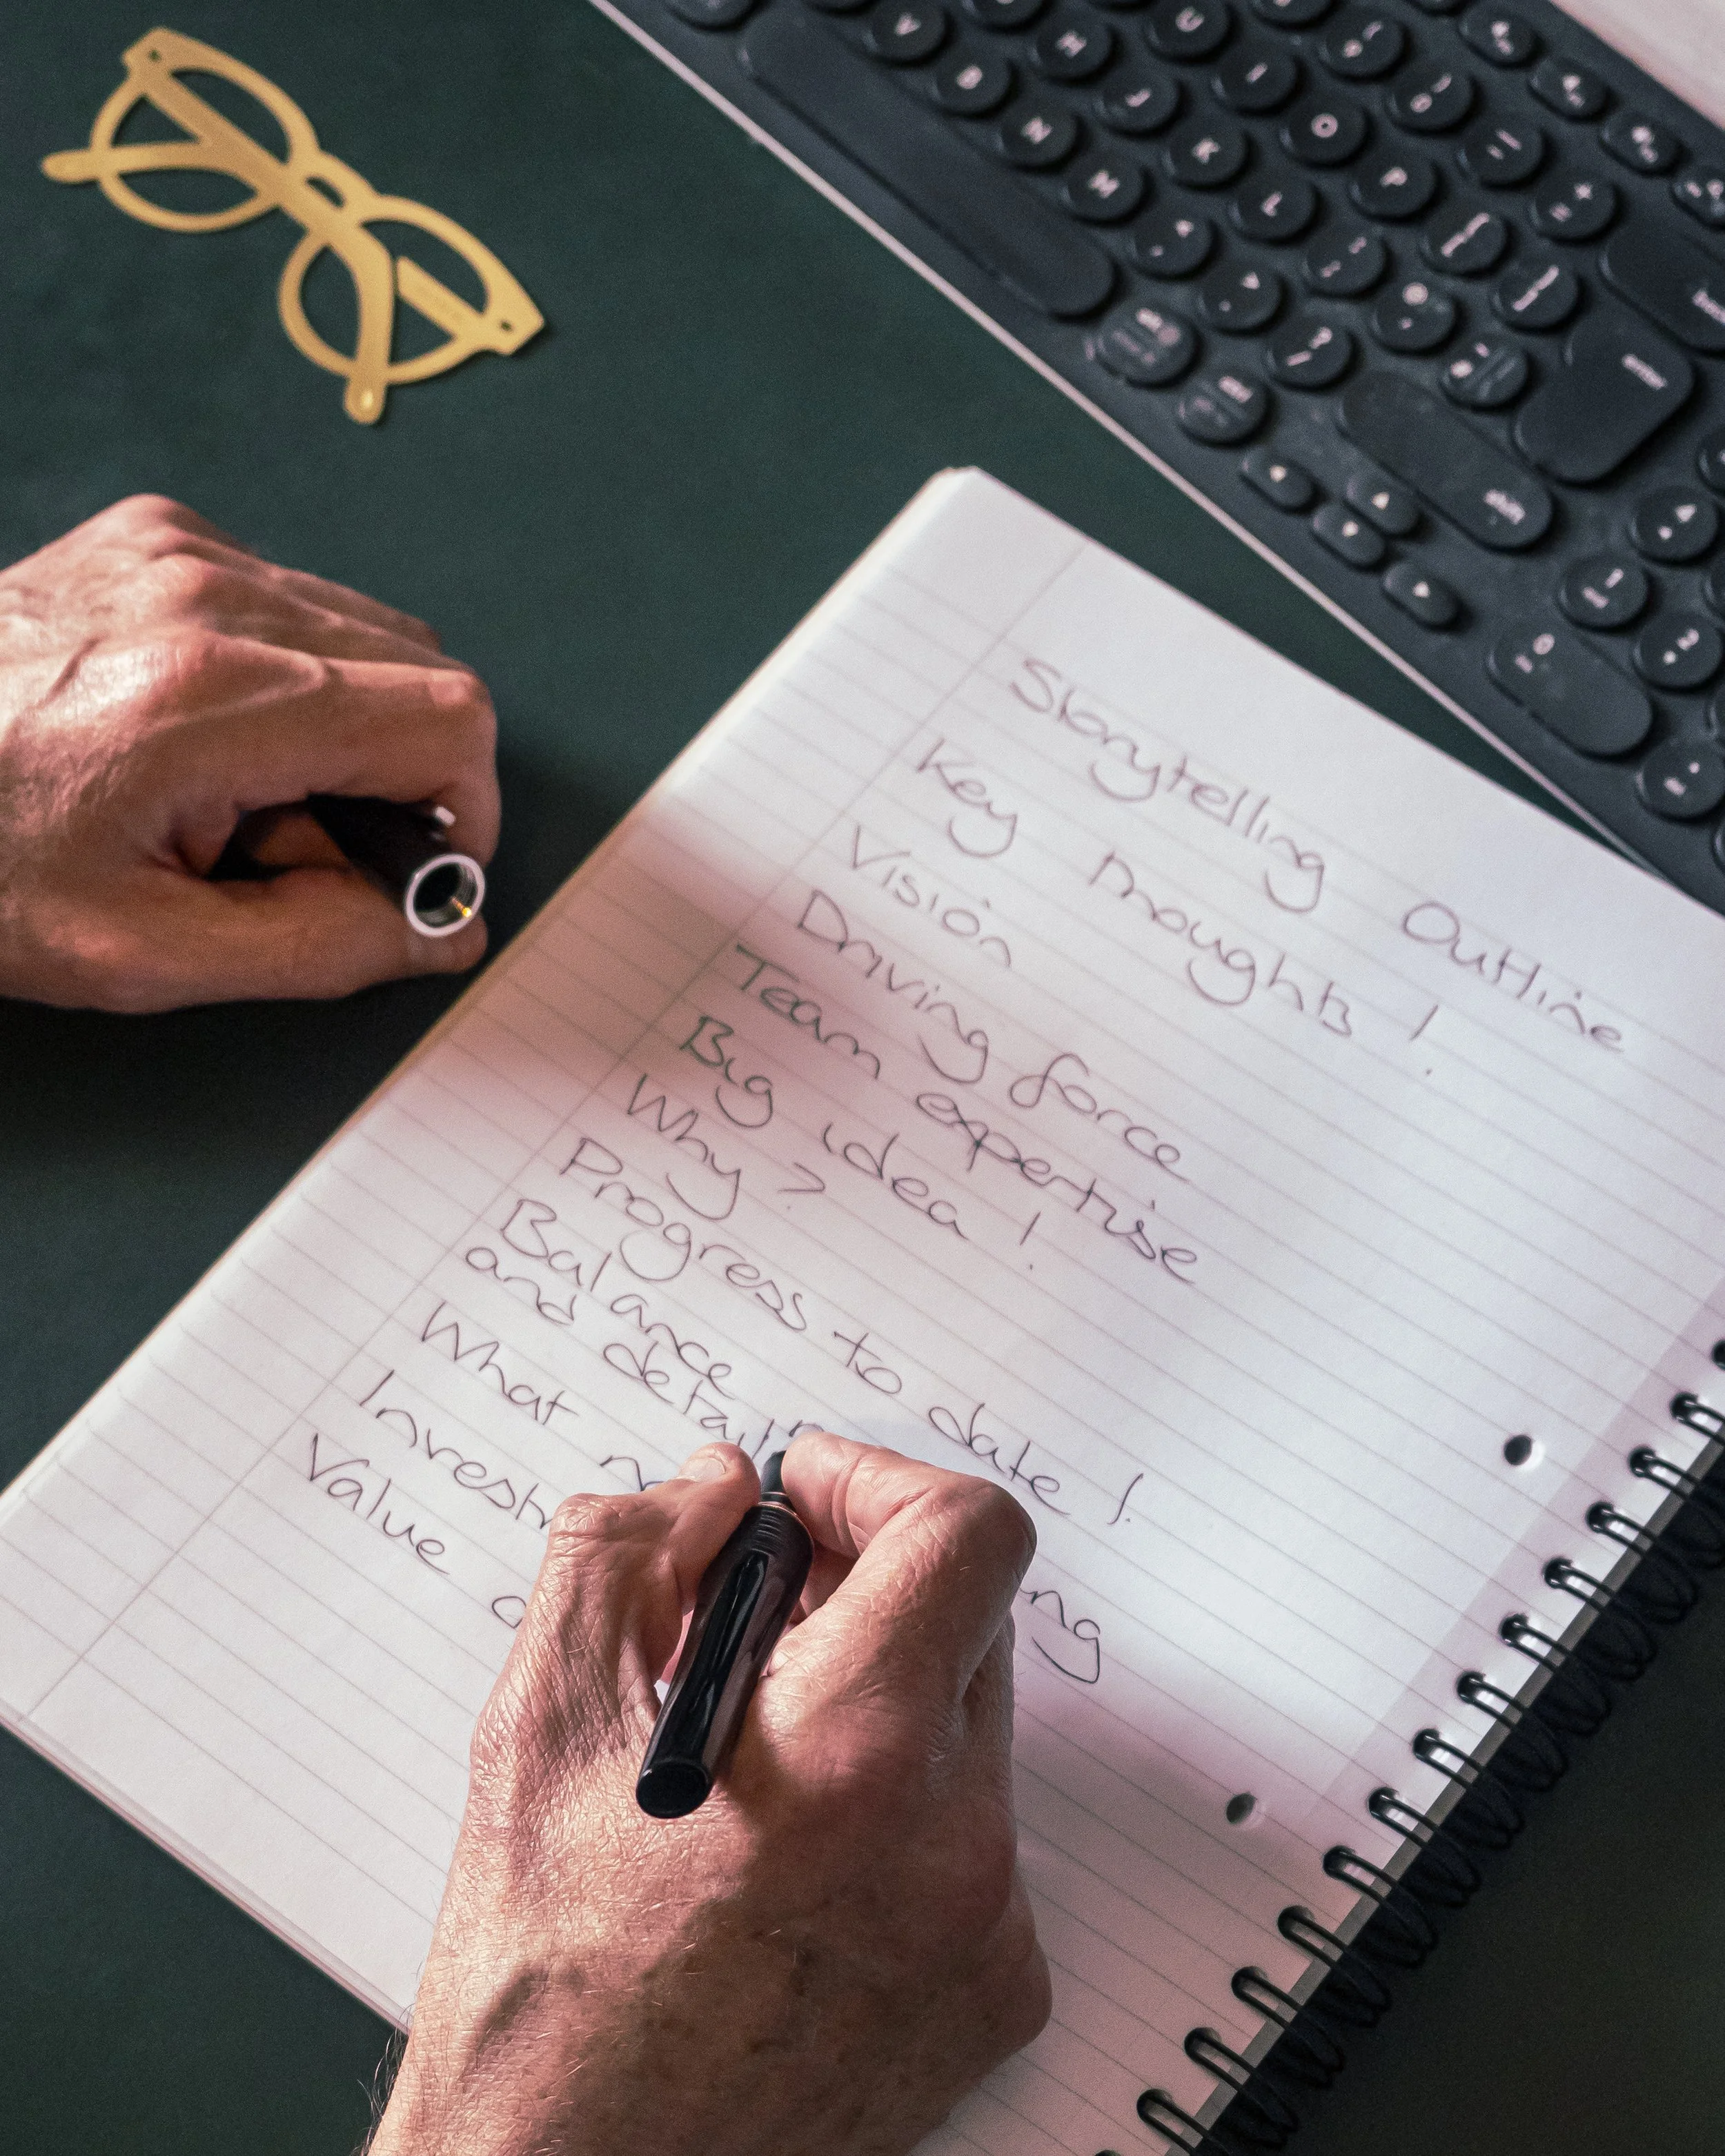 Storytelling Outline
Key Thoughts!
Vision
Driving force
Team expertise
Big idea!
Why?
Progress to date!
Balance
and detail
What
Value
V
B
N
M
H
J
K
L
U
I
O
P
enter
shift